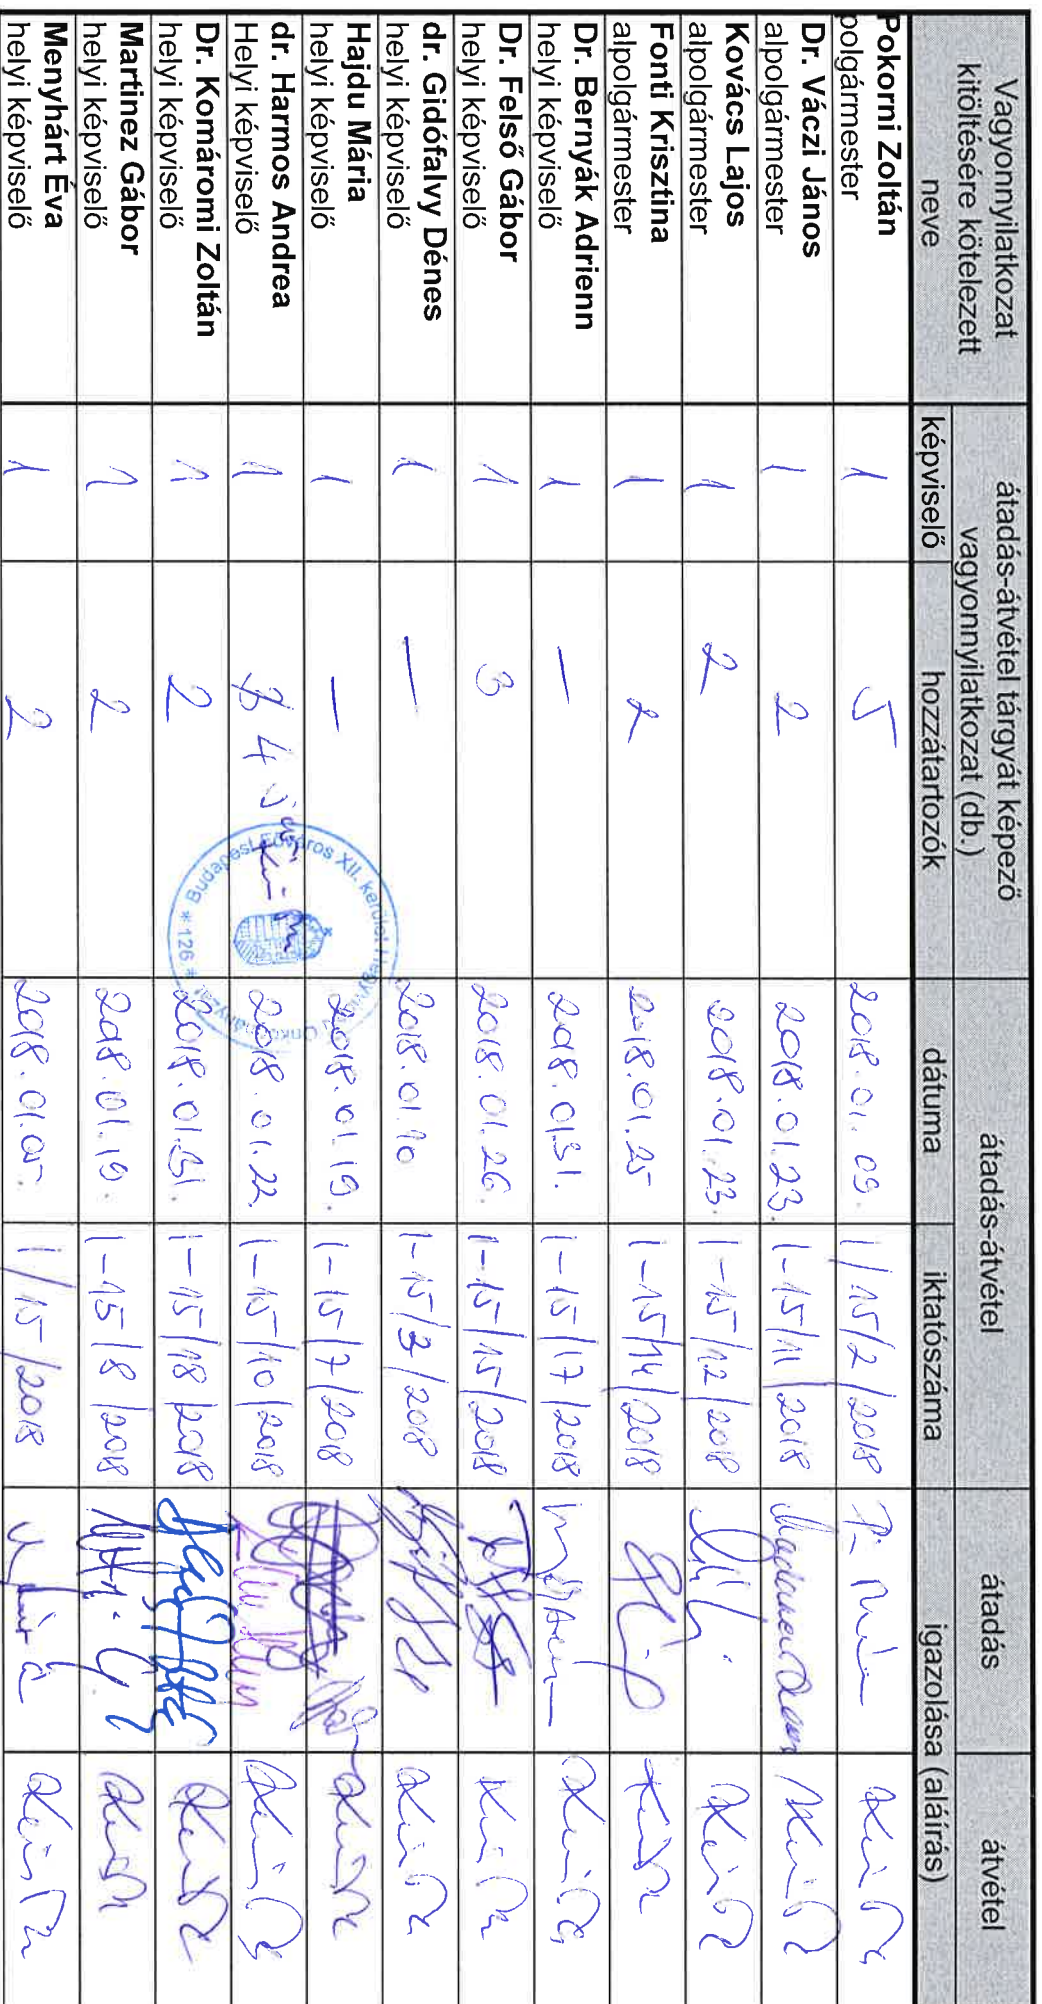 Vagyonnyilatkozat kitöltésére kötelezett neve
átadás-átvétel tárgyát képező vagyonnyilatkozat (db.)
átadás-átvétel
átadás
átvétel
képviselő
hozzátartozók
dátuma
iktatószáma
igazolása (aláírás)
Pokorni Zoltán
polgármester
1 5 2018.01.09. 1/15/2/2018
Dr. Váczi János
alpolgármester
1 2 2018.01.23. 1-15/11/2018
Kovács Lajos
alpolgármester
1 2 2018.01.23. 1-15/12/2018
Fonti Krisztina
alpolgármester
1 2 2018.01.25 1-15/14/2018
Dr. Bernyák Adrienn
helyi képviselő
1 — 2018.01.31. 1-15/17/2018
Dr. Felső Gábor
helyi képviselő
1 3 2018.01.26. 1-15/15/2018
dr. Gidófalvy Dénes
helyi képviselő
1 — 2018.01.10 1-15/3/2018
Hajdu Mária
helyi képviselő
1 — 2018.01.19. 1-15/7/2018
dr. Harmos Andrea
Helyi képviselő
1 4 2018.01.22. 1-15/10/2018
Dr. Komáromi Zoltán
helyi képviselő
1 2 2018.01.31. 1-15/18/2018
Martinez Gábor
helyi képviselő
1 2 2018.01.19. 1-15/8/2018
Menyhárt Éva
helyi képviselő
1 2 2018.01.05. 1/15/2018
Budapest Főváros XII. kerület Hegyvidéki Önkormányzat
* 126 *